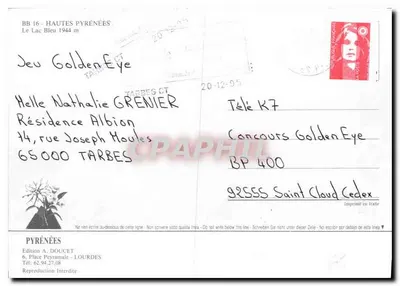 BB 16 - HAUTES PYRÉNÉES
Le Lac Bleu 1944 m
20-12-95
TARBES CT
TARBES CT
20-12-95
Jeu GoldenEye
Melle Nathalie GRENIER
Résidence Albion
14, rue Joseph Moules
65000 TARBES
Télé K7
Concours GoldenEye
BP 400
92555 Saint Cloud Cedex
CPAPHIL
PYRÉNÉES
Edition A. DOUCET
6, Place Peyramale - LOURDES
Tél: 62.94.27.08
Reproduction Interdite